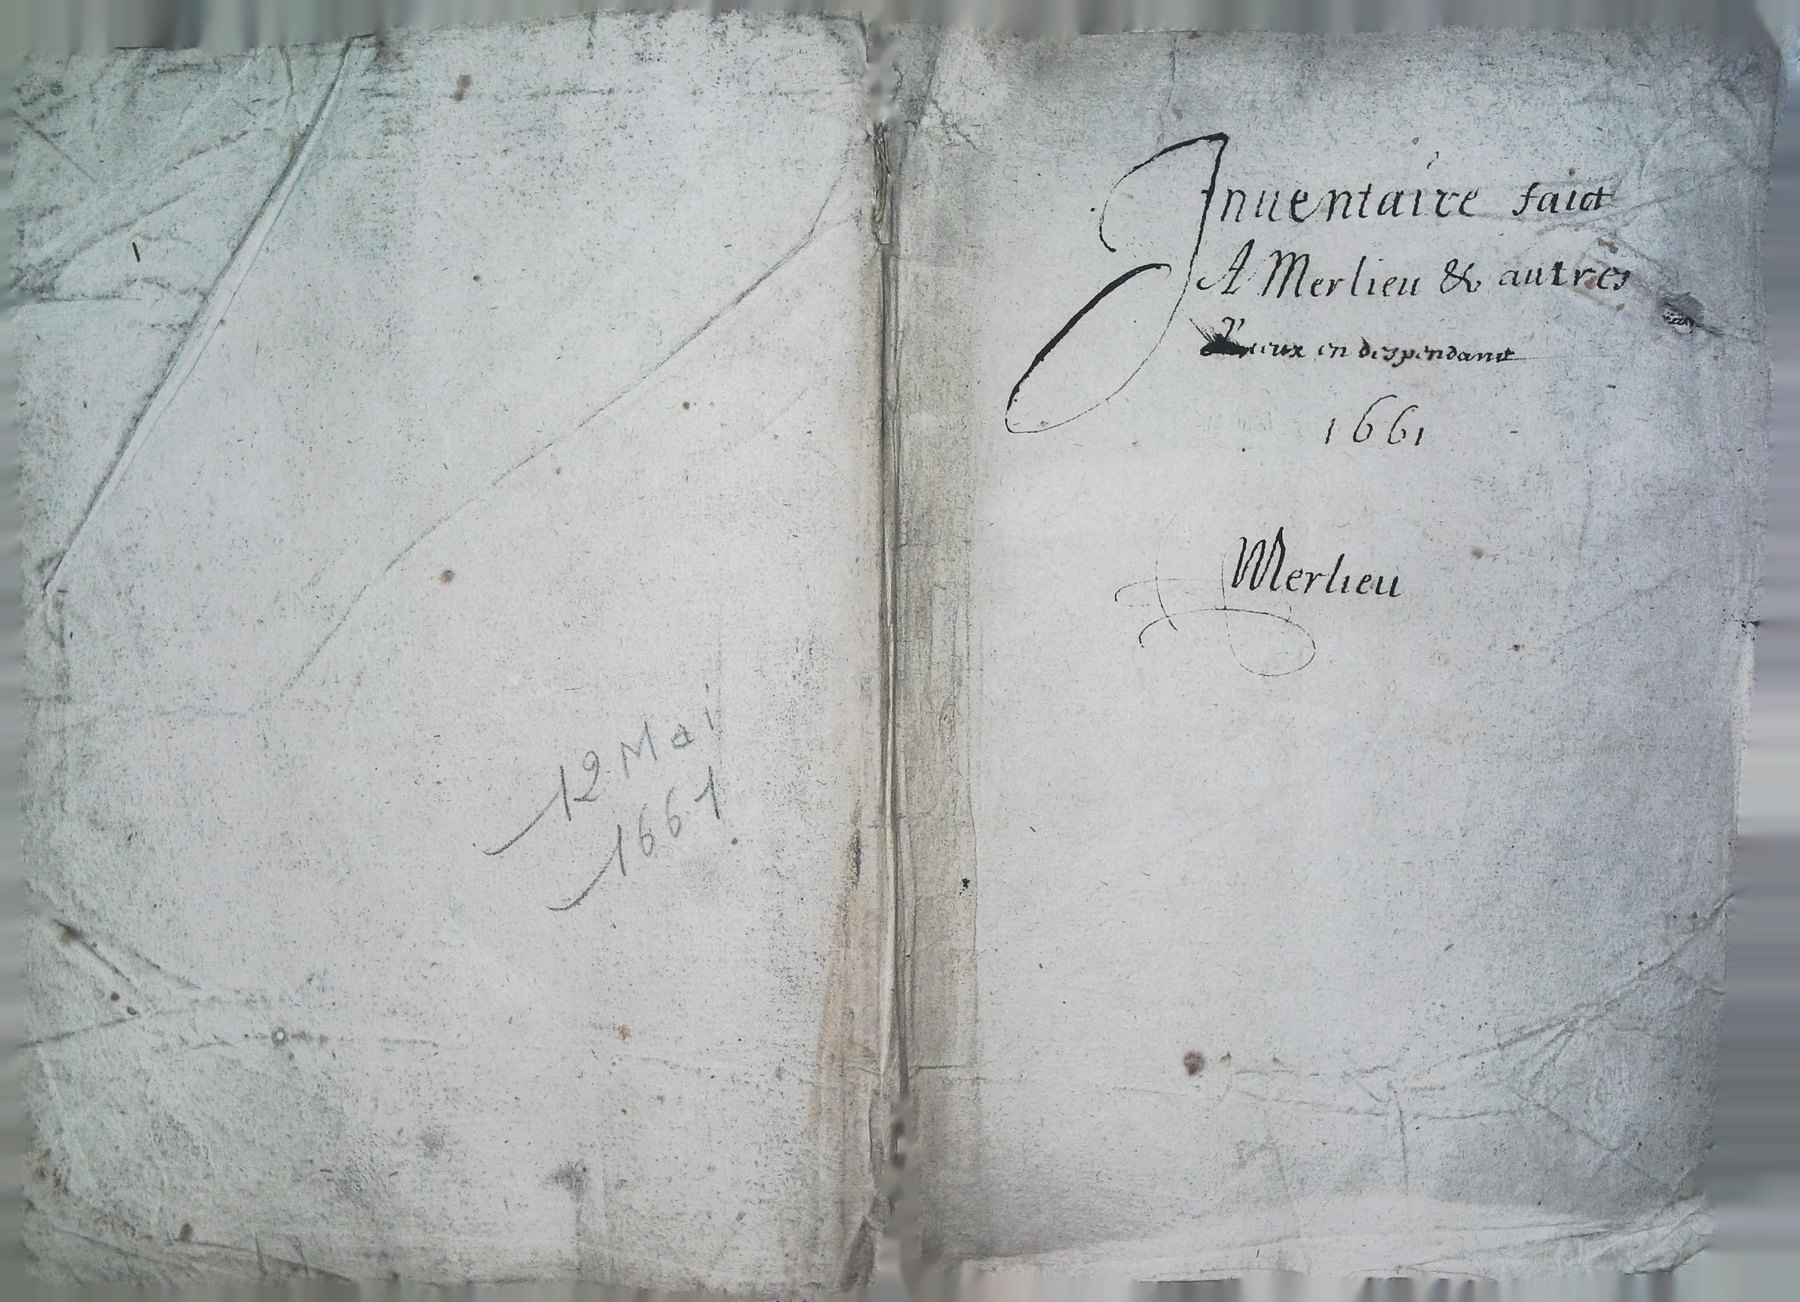 12 Mai
1661
Inuentaire faict
A Merlieu & autres
Lieux en despendant
1661
Merlieu